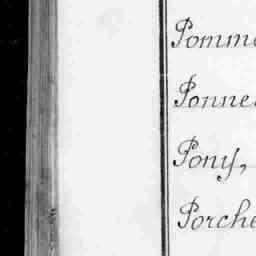 Pomme
Ponne
Pony,
Porche